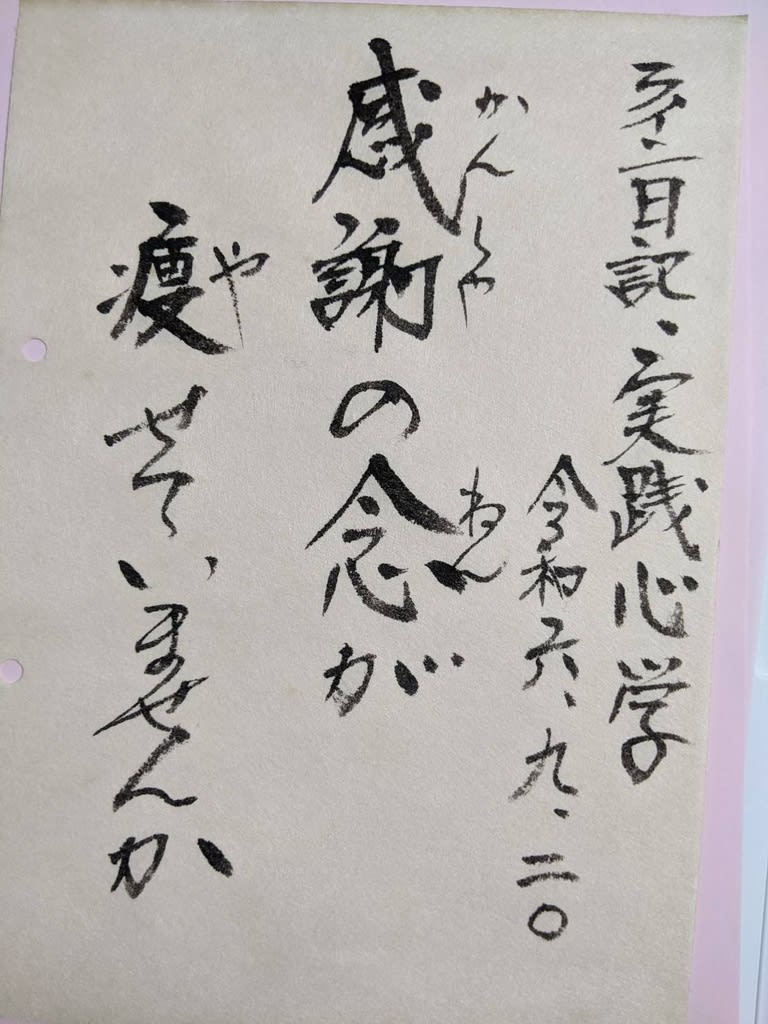 日記、実践心学
令和六、九、二〇
かんしゃ ねん
感謝の念が
や
痩せていませんか